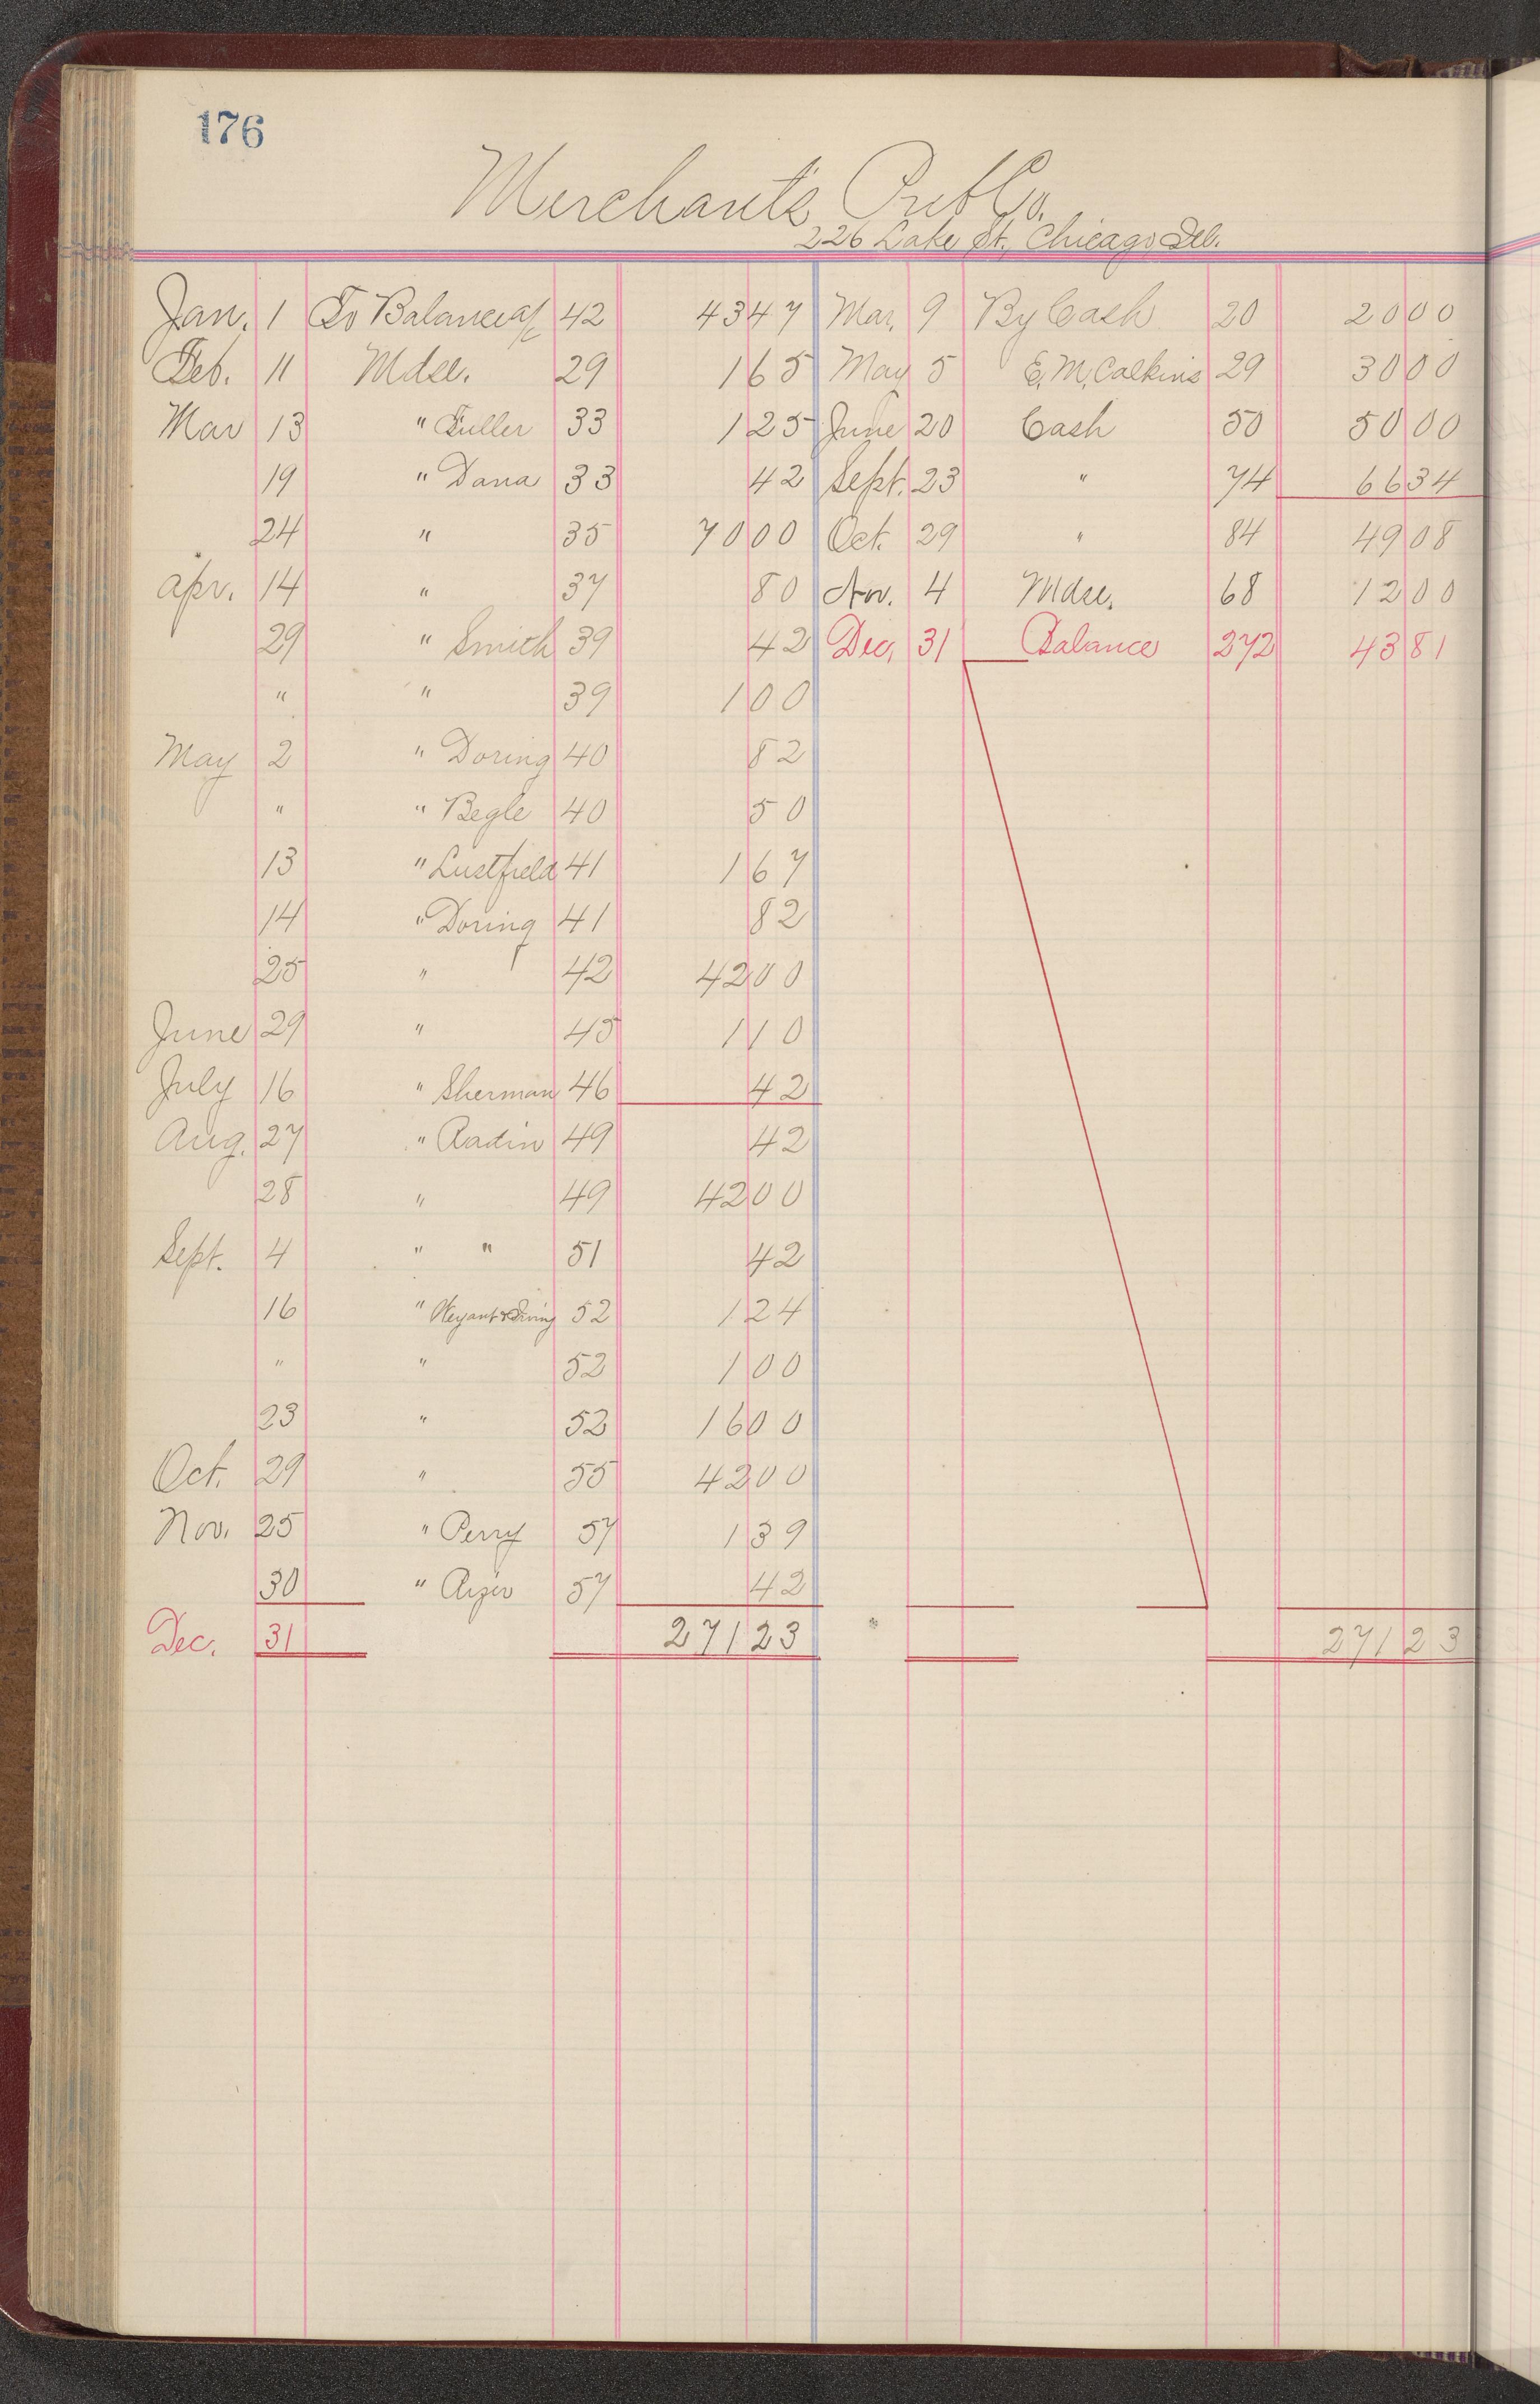 176
Merchants Pub Co.
226 Lake St., Chicago Ill.
Jan. 1 To Balance a/c 42 43 47 Mar. 9 By Cash 20 20 00
Feb. 11 Mdse. 29 1 65 May 5 E. M. Calkins 29 30 00
Mar 13 " Fuller 33 1 25 June 20 Cash 50 50 00
19 " Dana 33 42 Sept. 23 " 74 66 34
24 " 35 70 00 Oct. 29 " 84 49 08
Apr. 14 " 37 80 Nov. 4 Mdse. 68 12 00
29 " Smith 39 42 Dec. 31 Balance 272 43 81
" " 39 1 00
May 2 " Doring 40 82
" " Begle 40 50
13 " Lustfield 41 1 67
14 " Doring 41 82
25 " 42 42 00
June 29 " 45 1 10
July 16 " Sherman 46 42
Aug. 27 " Radin 49 42
28 " 49 42 00
Sept. 4 " " 51 42
16 " & Irving 52 1 24
" " 52 1 00
23 " 52 16 00
Oct. 29 " 55 42 00
Nov. 25 " Perry 57 1 39
30 " 57 42
Dec. 31 271 23 271 23